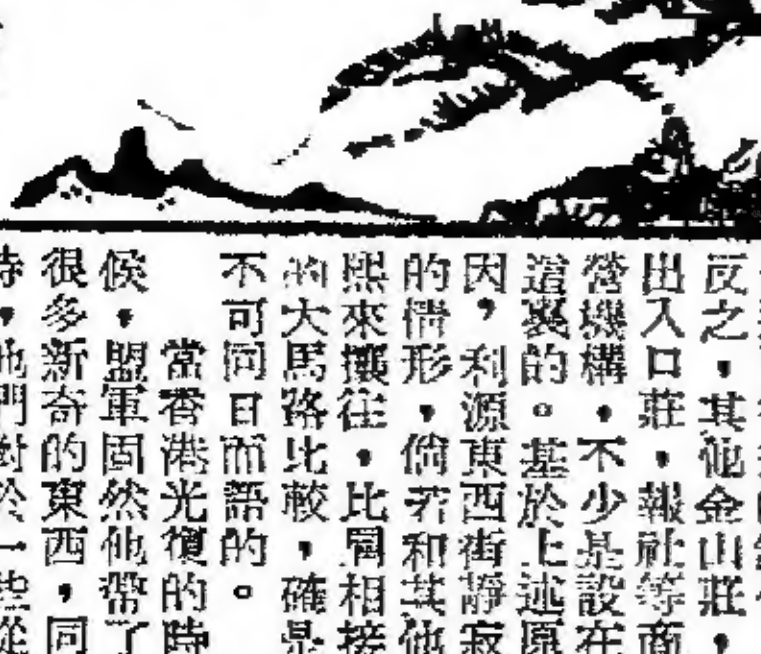 反之，其他金山莊，
出入口莊，報社等商
營機構，不少是設在
這裏的。基於上述原
因，利源東西街靜寂
的情形，倘若和其他
熙來攘往，比肩相接
的大馬路比較，確是
不可同日而語的。
當香港光復的時
候，盟軍固然他帶了
很多新奇的東西，同
時，他們對於一些從